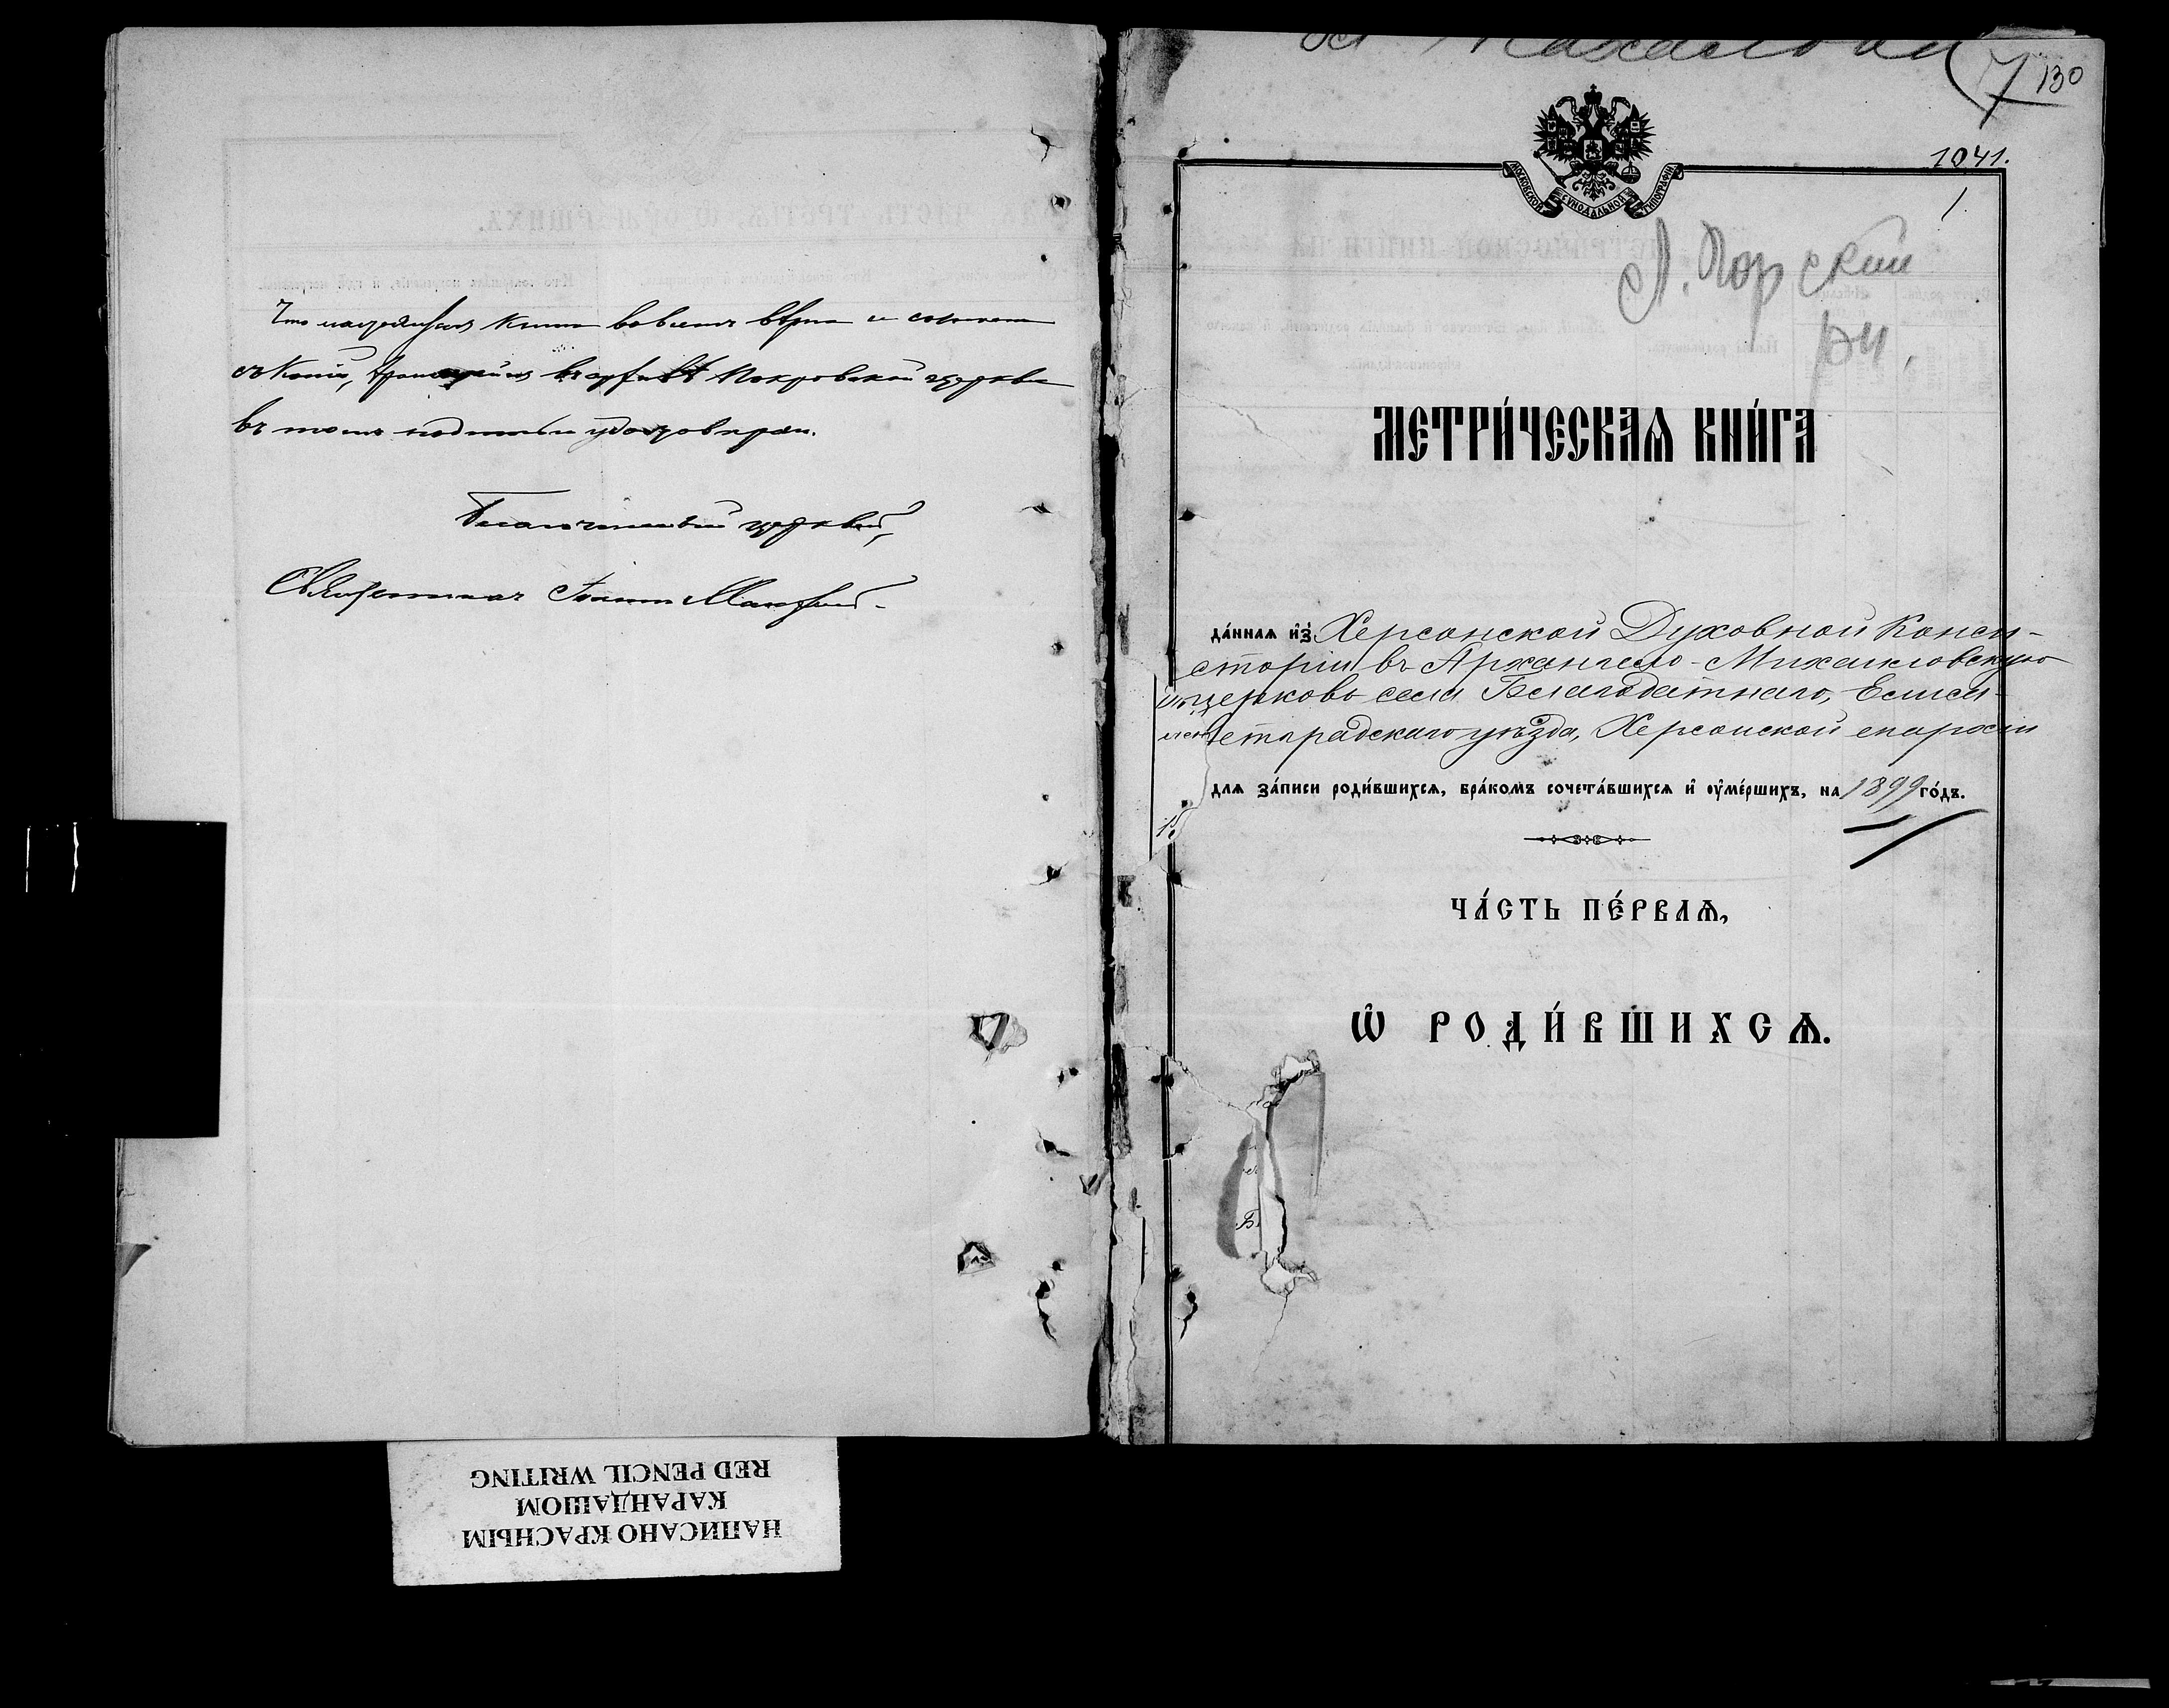 Что настоящая книга вовсемъ вѣрна и согласна
съ копіей, хранящейся въ архивѣ Покровской церкви
въ томъ подписью удостовѣряю.
Благочинный церквей,
Священникъ Іоаннъ
130
1041.
1
МОСКОВСКОЙ СѴНОДАЛЬНОЙ ТИПОГРАФІИ
МЕТРИ́ЧЕСКАѦ КНИ́ГА
да́ннаѧ и҆з̾ Херсонской Духовной Конси-
сторіи въ Архангело-Михайловскую
церковь села Благодатнаго, Елиса-
ветградскаго уѣзда, Херсонской епархіи
длѧ за́писи роди́вшихсѧ, бра́комъ сочета́вшихсѧ и҆ ᲂу҆ме́ршихъ, на 1899 го́дъ.
ЧА́СТЬ ПЕ́РВАѦ,
Ѡ҆ РОДИ́ВШИХСѦ.
НАПИСАНО КРАСНЫМ
КАРАНДАШОМ
RED PENCIL WRITING